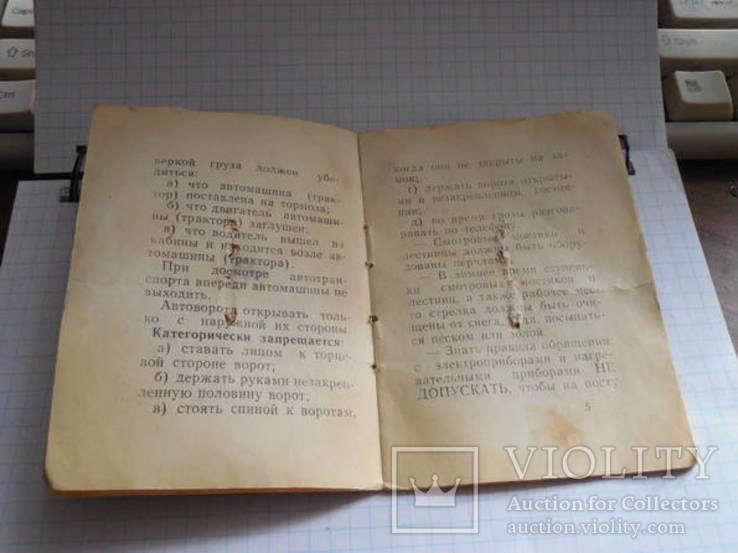 веркой груза должен убе-
диться:
а) что автомашина (трак-
тор) поставлена на тормоза;
б) что двигатель автомаши-
ны (трактора) заглушен;
в) что водитель вышел из
кабины и находится возле ав-
томашины (трактора).
При досмотре автотран-
спорта впереди автомашины не
выходить.
Автоворота открывать толь-
ко с наружной их стороны
Категорически запрещается:
а) ставать лицом к торце-
вой стороне ворот;
б) держать руками незакреп-
ленную половину ворот;
в) стоять спиной к воротам,
когда они не закрыты на за-
мок;
г) держать ворота открыты-
ми в незакрепленном состоя-
нии;
д) во время грозы разгова-
ривать по телефону.
— Смотровые мостики и
лестницы должны быть обору-
дованы перилами.
— В зимнее время ступень-
ки смотровых мостиков и
лестниц, а также рабочее место
стрелка должны быть очи-
щены от снега, льда, посыпать-
ся песком или золой.
— Знать правила обращения
с электроприборами и нагре-
вательными приборами НЕ
ДОПУСКАТЬ, чтобы на посту
5
VIOLITY
Auction for Collectors
auction.violity.com
Ctrl